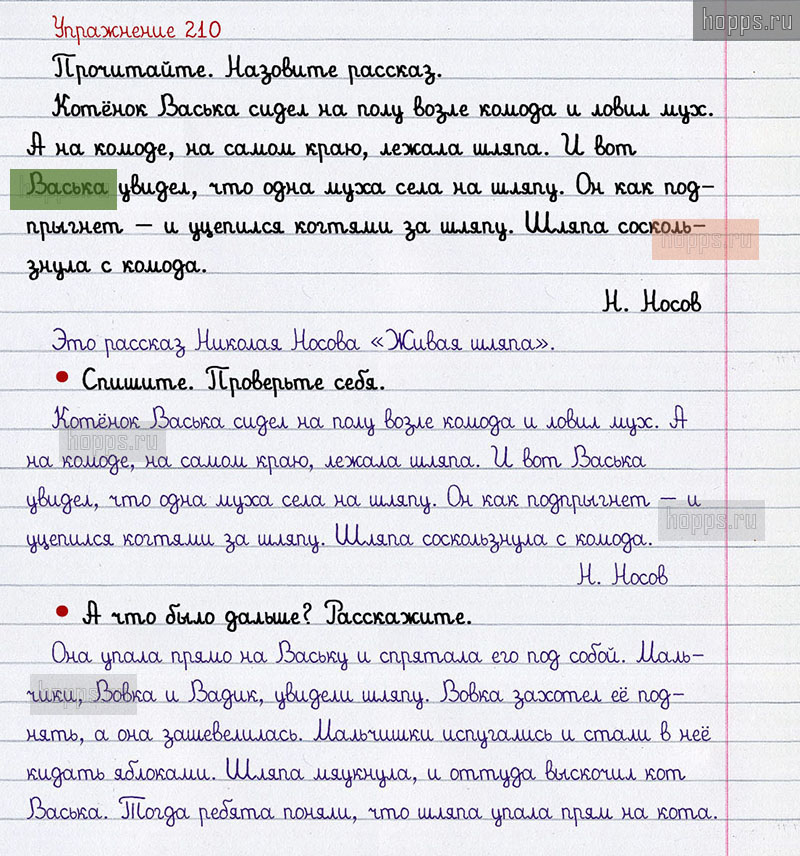 hopps.ru
Упражнение 210
Прочитайте. Назовите рассказ.
Котёнок Васька сидел на полу возле комода и ловил мух.
А на комоде, на самом краю, лежала шляпа. И вот
Васька увидел, что одна муха села на шляпу. Он как под-
прыгнет – и уцепился когтями за шляпу. Шляпа трюсколь-
знула с комода.
Н. Носов
Это рассказ Николая Носова «Живая шляпа».
• Спишите. Проверьте себя.
Котёнок Васька сидел на полу возле комода и ловил мух. А
на комоде, на самом краю, лежала шляпа. И вот Васька
увидел, что одна муха села на шляпу. Он как подпрыгнет – и
уцепился когтями за шляпу. Шляпа соскользнула с комода.
Н. Носов
• А что было дальше? Расскажите.
Она упала прямо на Ваську и спрятала его под собой. Маль-
чики, Вовка и Вадик, увидели шляпу. Вовка захотел её под-
нять, а она зашевелилась. Мальчишки испугались и стали в неё
кидать яблоками. Шляпа мяукнула, и оттуда выскочил кот
Васька. Тогда ребята поняли, что шляпа упала прям на кота.